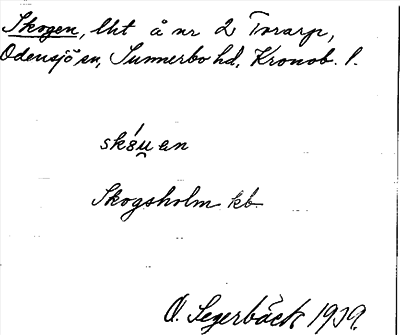 Skogen, lht å nr 2 Torarp,
Odensjö sn, Sunnerbo hd, Kronob. l.
skóu̯ en
Skogsholm kb.
O. Segerbäck 1939.